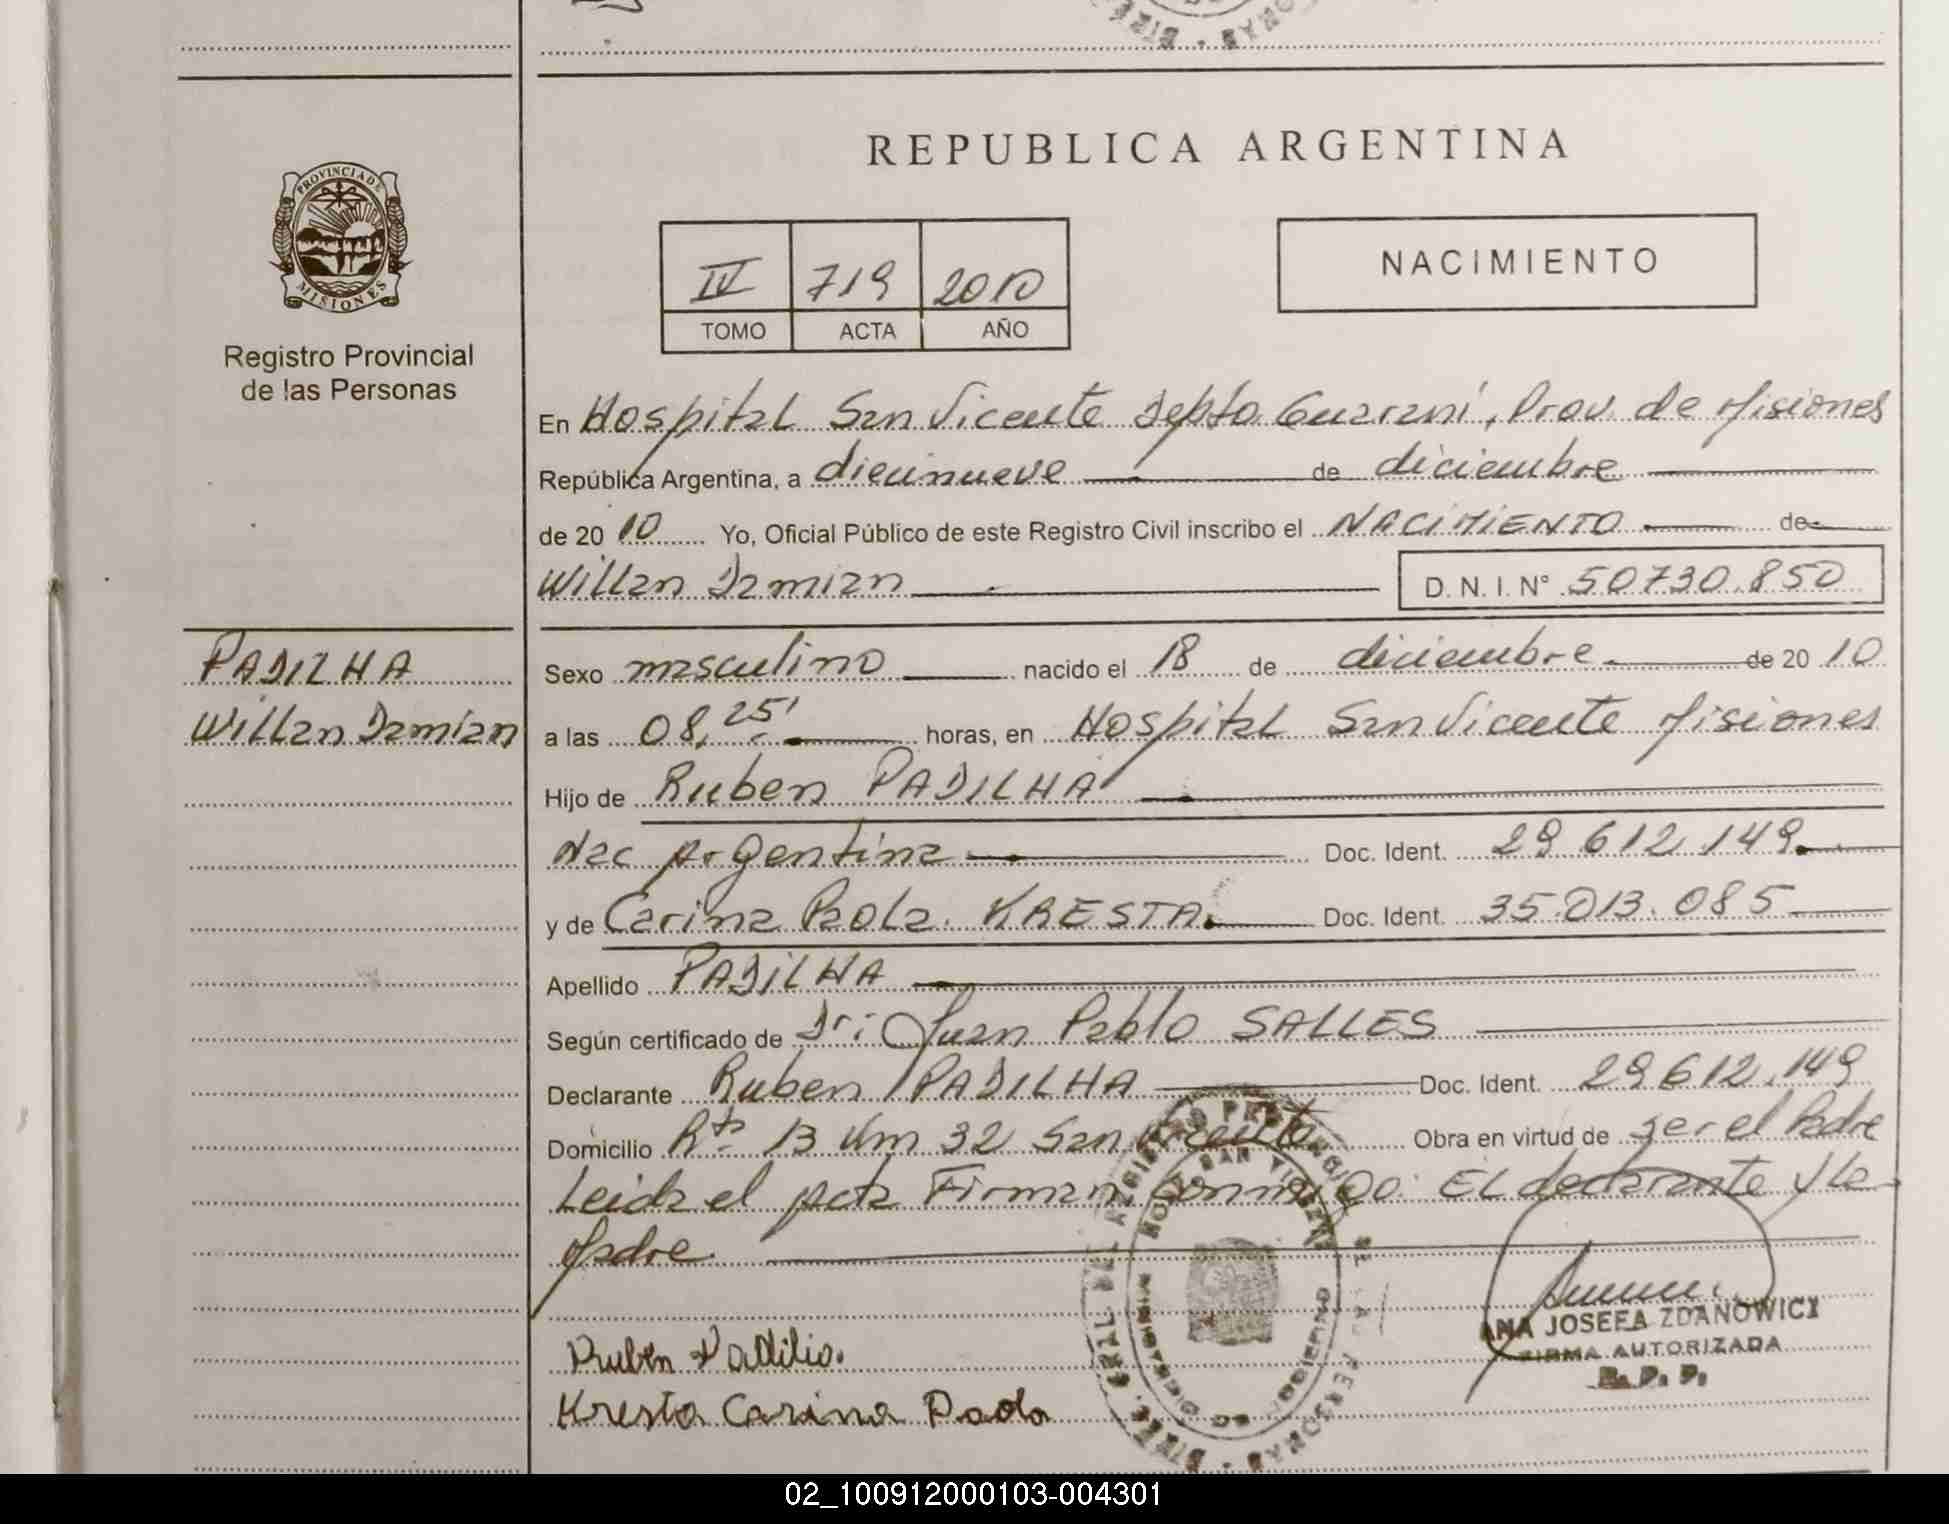 REPUBLICA ARGENTINA
PROVINCIA DE
MISIONES
Registro Provincial
de las Personas
IV 719 2010
TOMO ACTA AÑO
NACIMIENTO
En Hospital San Vicente Depto Guaraní, Prov. de Misiones
República Argentina, a diecinueve de diciembre
de 2010 Yo, Oficial Público de este Registro Civil inscribo el NACIMIENTO de
Willan Damian D. N. I. N° 50730.850
PADILHA
Willan Damian
Sexo masculino nacido el 18 de diciembre de 2010
a las 08,25' horas, en Hospital San Vicente Misiones
Hijo de Ruben PADILHA
Nac Argentina Doc. Ident. 29 612.149
y de Carina Paola KRESTA Doc. Ident. 35.013.085
Apellido PADILHA
Según certificado de Dr: Juan Pablo SALLES
Declarante Ruben PADILHA Doc. Ident. 29 612.149
Domicilio Rta 13 Km 32 San Vicente Obra en virtud de ser el Padre
Leida el acta Firman conmigo: El declarante y la
Madre
Ruben Padilla
Kresta Carina Paola
ANA JOSEFA ZDANOWICZ
FIRMA AUTORIZADA
R. P. P.
02_100912000103-004301